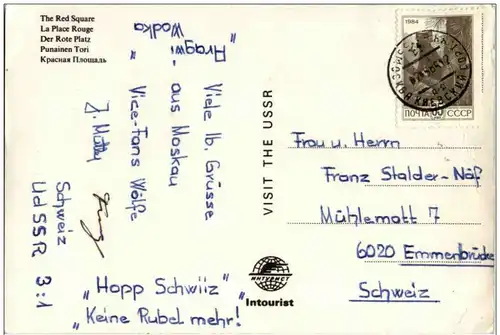 The Red Square
La Place Rouge
Der Rote Platz
Punainen Tori
Красная Площадь
"Aragwi"
Wodka
Viele lb. Grüsse
aus Moskau
Vice-Fans Wölfe
Schweiz
UdSSR 3:1
"Hopp Schwiiz"
"Keine Rubel mehr!"
VISIT THE USSR
ИНТУРИСТ
Intourist
1984
ПОЧТА СССР
Frau u. Herrn
Franz Stalder-Näf
Mühlematt 7
6020 Emmenbrücke
Schweiz